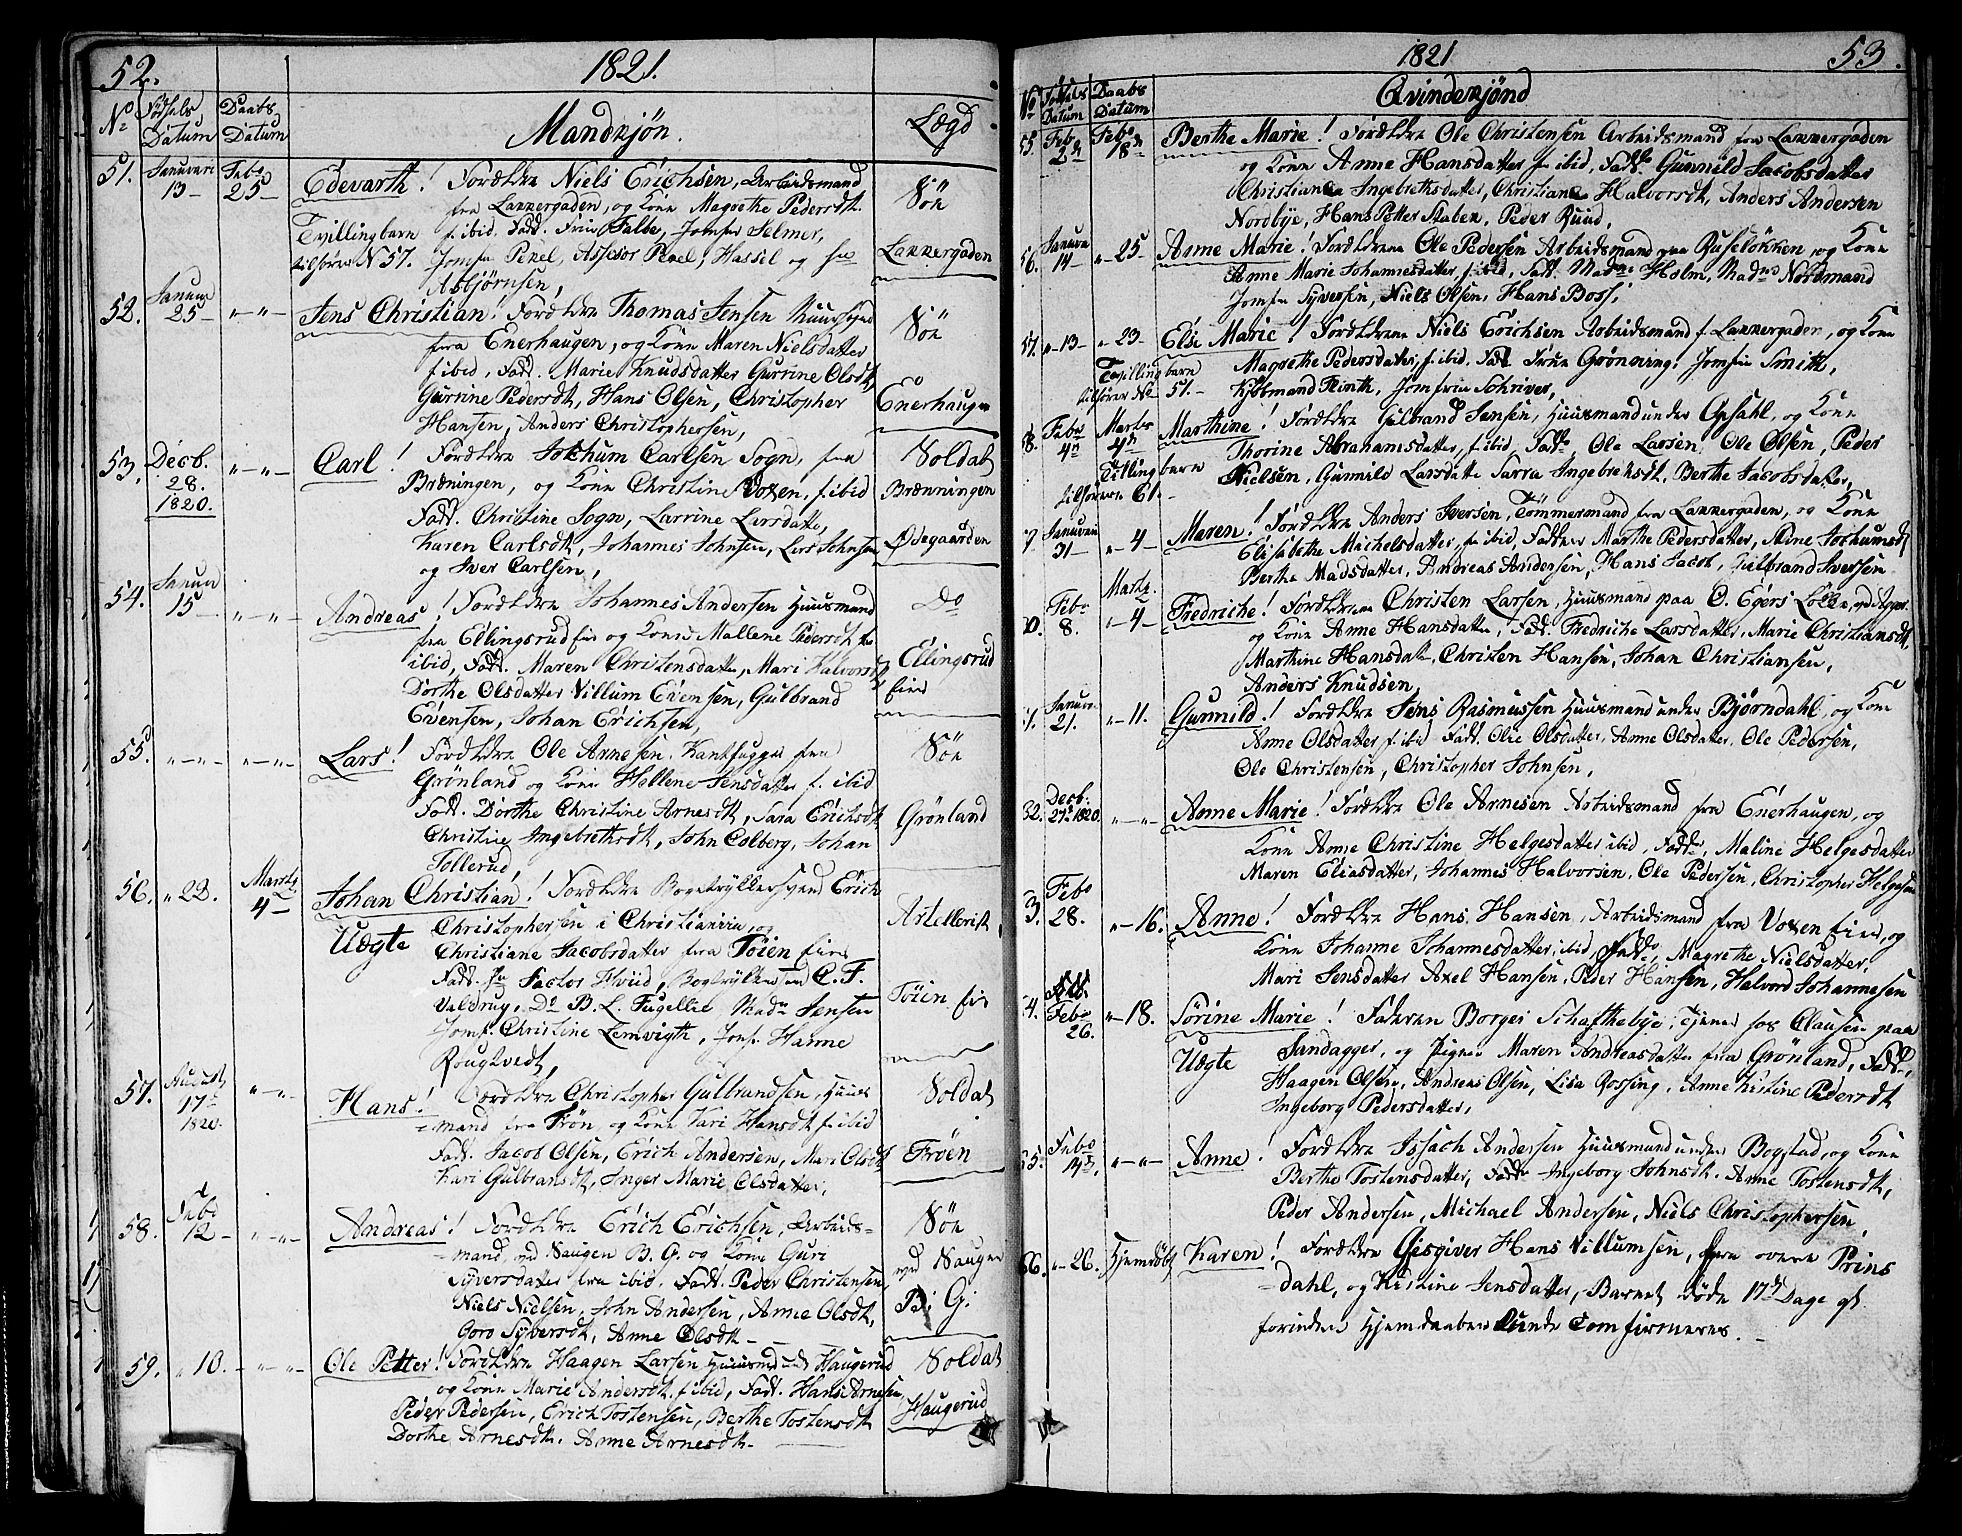 52.
1821.
No Fødsels Datum
Daabs Datum
Mandkjøn.
Lægd
51. Januari 13 — Febr 25 —
Edevarth! Forældre Niels Erichsen, Arbeidsmand
fra Lakkergaden, og Kone Magrethe Pedersdt.
f. ibid. Fadd. Falbe, Jomfru Selmer,
Tvillingbarn
tilføres N 57.
Assesor
Hassel og
Asbjørnsen,
Søe
Lakkergaden
52. Januar 25 — " — " —
Jens Christian! Forældre Thomas Jensen
fra Enerhaugen, og Kone Maren Nielsdatter
f ibid, Fadd. Marie Knudsdatter Gurrine Olsdt,
Gurine Pedersdt, Hans Olsen, Christopher
Hansen, Anders Christophersen,
Søe
Enerhaugen
53. Decb. 28. 1820. " — " —
Carl! Forældre Jokhum Carlsen Sogn, fra
Bræningen, og Kone Christine Voxen, f. ibid
Fadd. Christine Sogn, Larrine Larsdatter,
Karen Carlsdt, Johannes Johnsen, Lars Johnsen,
og Iver Carlsen,
Soldat
Brænningen
Ødegaarden
54. Januar 15 — " — " —
Andreas! Forældre Johannes Andersen Huusmand
fra Ellingsrud eie og Kone Mallene Pedersdt fra
ibid, Fadd. Maren Christensdatter, Mari Halvorsdt
Dorthe Olsdatter Villum Evensen, Gulbrand
Evensen, Johan Erichsen,
Do
Ellingsrud
eie
55. " — " — " — " —
Lars! Forældre Ole Arnesen fra
Grønland og Kone Hellene Jensdatter f. ibid
Fadd. Dorthe Christine Arnesdt, Sara Erichsdt
Christine Ingebrethsdt, John Colberg, Johan
Tollerud,
Søe
Grønland
56. " 22. Marts 4 —
Johan Christian! Forældre Bogtrykkersvend Erich
Christophersen i Christiania, og
Uægte
Christiane Jacobsdatter fra Tøien eie
Fadd. Factor Hviid, Bogtrykker C. F.
Valdrug, Do B. L. Madm Jensen
Jomf. Christine Lemvigth, Jomf. Hanne
Rougtvedt,
Artellerist
Tøien eie
57. August 17de 1820. " — " —
Hans! Forældre Christopher Gulbrandsen, Huus
mand fra Frøn og Kone Kari Hansdt f. ibid
Fadd. Jacob Olsen, Erich Andersen, Mari Olsdt
Kari Gulbransdt, Inger Marie Olsdatter,
Soldat
Frøen
58. Febr 12 — " — " —
Andreas! Forældre Erich Erichsen, Arbeids-
mand, ved Saugen B. G. og Kone Guri
Syversdatter fra ibid. Fadd. Peder Christensen,
Niels Nielsen, John Andersen, Anne Olsdt,
Goro Syversdt, Anne Olsdt —
Søe
ved Saugen
B. G.
59. " 10. — " — " —
Ole Petter! Forældre Haagen Larsen Huusmd under Haugerud
og Kone Marie Andersdt. f. ibid, Fadd. Hans Arnesen,
Peder Pedersen, Erich Tostensen, Berthe Tostensdt
Dorthe Arnesdt. Anne Arnesdt. —
Soldat
Haugerud
1821
53.
No Fødsels Datum
Daabs Datum
Qvindekjønd
55. Febr 2d Febr 18d
Berthe Marie! Forældre Ole Christensen Arbeidsmand fra Lakkergaden
og Kone Anne Hansdatter f. ibid, Fadd. Gunnild Jacobsdatter
Christiane Ingebrethsdatter, Christiane Halvorsdt, Anders Andersen
Nordbye, Hans Petter Staber, Peder Ruud,
56. Januar 14 — " 25 —
Anne Marie! Forældrene Ole Pedersen Arbeidsmand paa Ruseløkken og Kone
Anne Marie Johannesdatter, f. ibid, Fadd. Madme Holm, Madme Nordmand
Jomfru Syversen, Niels Olsen, Hans Boss;
57. " 13 — " 23 —
Elsi Marie! Forældrene Niels Erichsen Arbeidsmand f. Lakkergaden, og Kone
Magrethe Pedersdatter, f. ibid. Fadd Frue Grønning, Jomfru Smith,
Kjøbmand Flinth, Jomfru Schriver,
Tvillingbarn
tilføres No 51. —
58. Febr 4de Marts 4de
Marthine! Forældre Gulbrand Jensen, Huusmand under Opsahl, og Kone
Thorine Abrahamsdatter, f. ibid, Fadd. Ole Larsen, Ole Olsen, Peder
Nielsen, Gunnild Larsdatter Sarra Ingebrethsdt, Berthe Jacobsdatter,
Tvillingbarn
tilføres 61. —
Januari 31 — " 4 —
Maren! Forældre Anders Iversen, Tømmermand fra Lakkergaden, og Kone
Elisabethe Michelsdatter, f. ibid, Faddere Marthe Pedersdatter, Aline Jokhumsdt
Berthe Madsdatter, Andreas Andersen, Hans Jacob, Gulbrand Iversen
Febr 8. Marts " 4 —
Fredriche! Forældrene Christen Larsen, Huusmand paa O. Egers Løkke,
og Kone Anne Hansdatter, Fadd. Fredriche Larsdatter, Marie Christiansdt,
Marthine Hansdatter, Christen Hansen, Johan Christiansen,
Anders Knudsen,
Januar 21. " — 11.
Gunnild! Forældre Jens Rasmussen Huusmand under Bjørndahl, og Kone
Anne Olsdatter f. ibid Fadd. Olie Olsdatter, Anne Olsdatter, Ole Pedersen,
Ole Christensen, Christopher Johnsen,
Decb. 27. 1820. " — " —
Anne Marie! Forældre Ole Arnesen Arbeidsmand fra Enerhaugen, og
Kone Anne Christine Helgesdatter ibid, Fadd. Maline Helgesdatter
Maren Eliasdatter, Johannes Halvorsen, Ole Pedersen, Christopher Helgesen
Febr 28. " — 16.
Anne! Forældre Hans Hansen, Arbeidsmand fra Voxen eie, og
Kone Johanne Johannesdatter, ibid, Fadd., Magrethe Nielsdatter,
Mari Jensdatter Axel Hansen, Peder Hansen, Halvord Johannesen
Febr 26. " — 18.
Sørine Marie! Faderen Borger Schafthebye, tjener hos Clausen paa
Uægte
Sandagger, og Pigen Maren Andreasdatter fra Grønland, Fadd.
Haagen Olsen, Andreas Olsen, Lisa Rossing, Anne Kistine Pedersdt
Ingeborg Pedersdatter,
Febr " — " —
Anne! Forældre Issach Andersen Huusmand under Bogstad, og Kone
Berthe Tostensdatter, Fadd. Ingeborg Johnsdt. Anne Tostensdt,
Peder Andersen, Michael Andersen, Niels Christophersen,
66. " — 26. Hjemdøbt
Karen! Forældre Gjesgiver Hans Villumsen, fra overe Prins
dahl, og Kistine Jensdatter, Barnet døde 17de Dage gl.
forinden Hjemdaaben kunde Comfirmeres. —